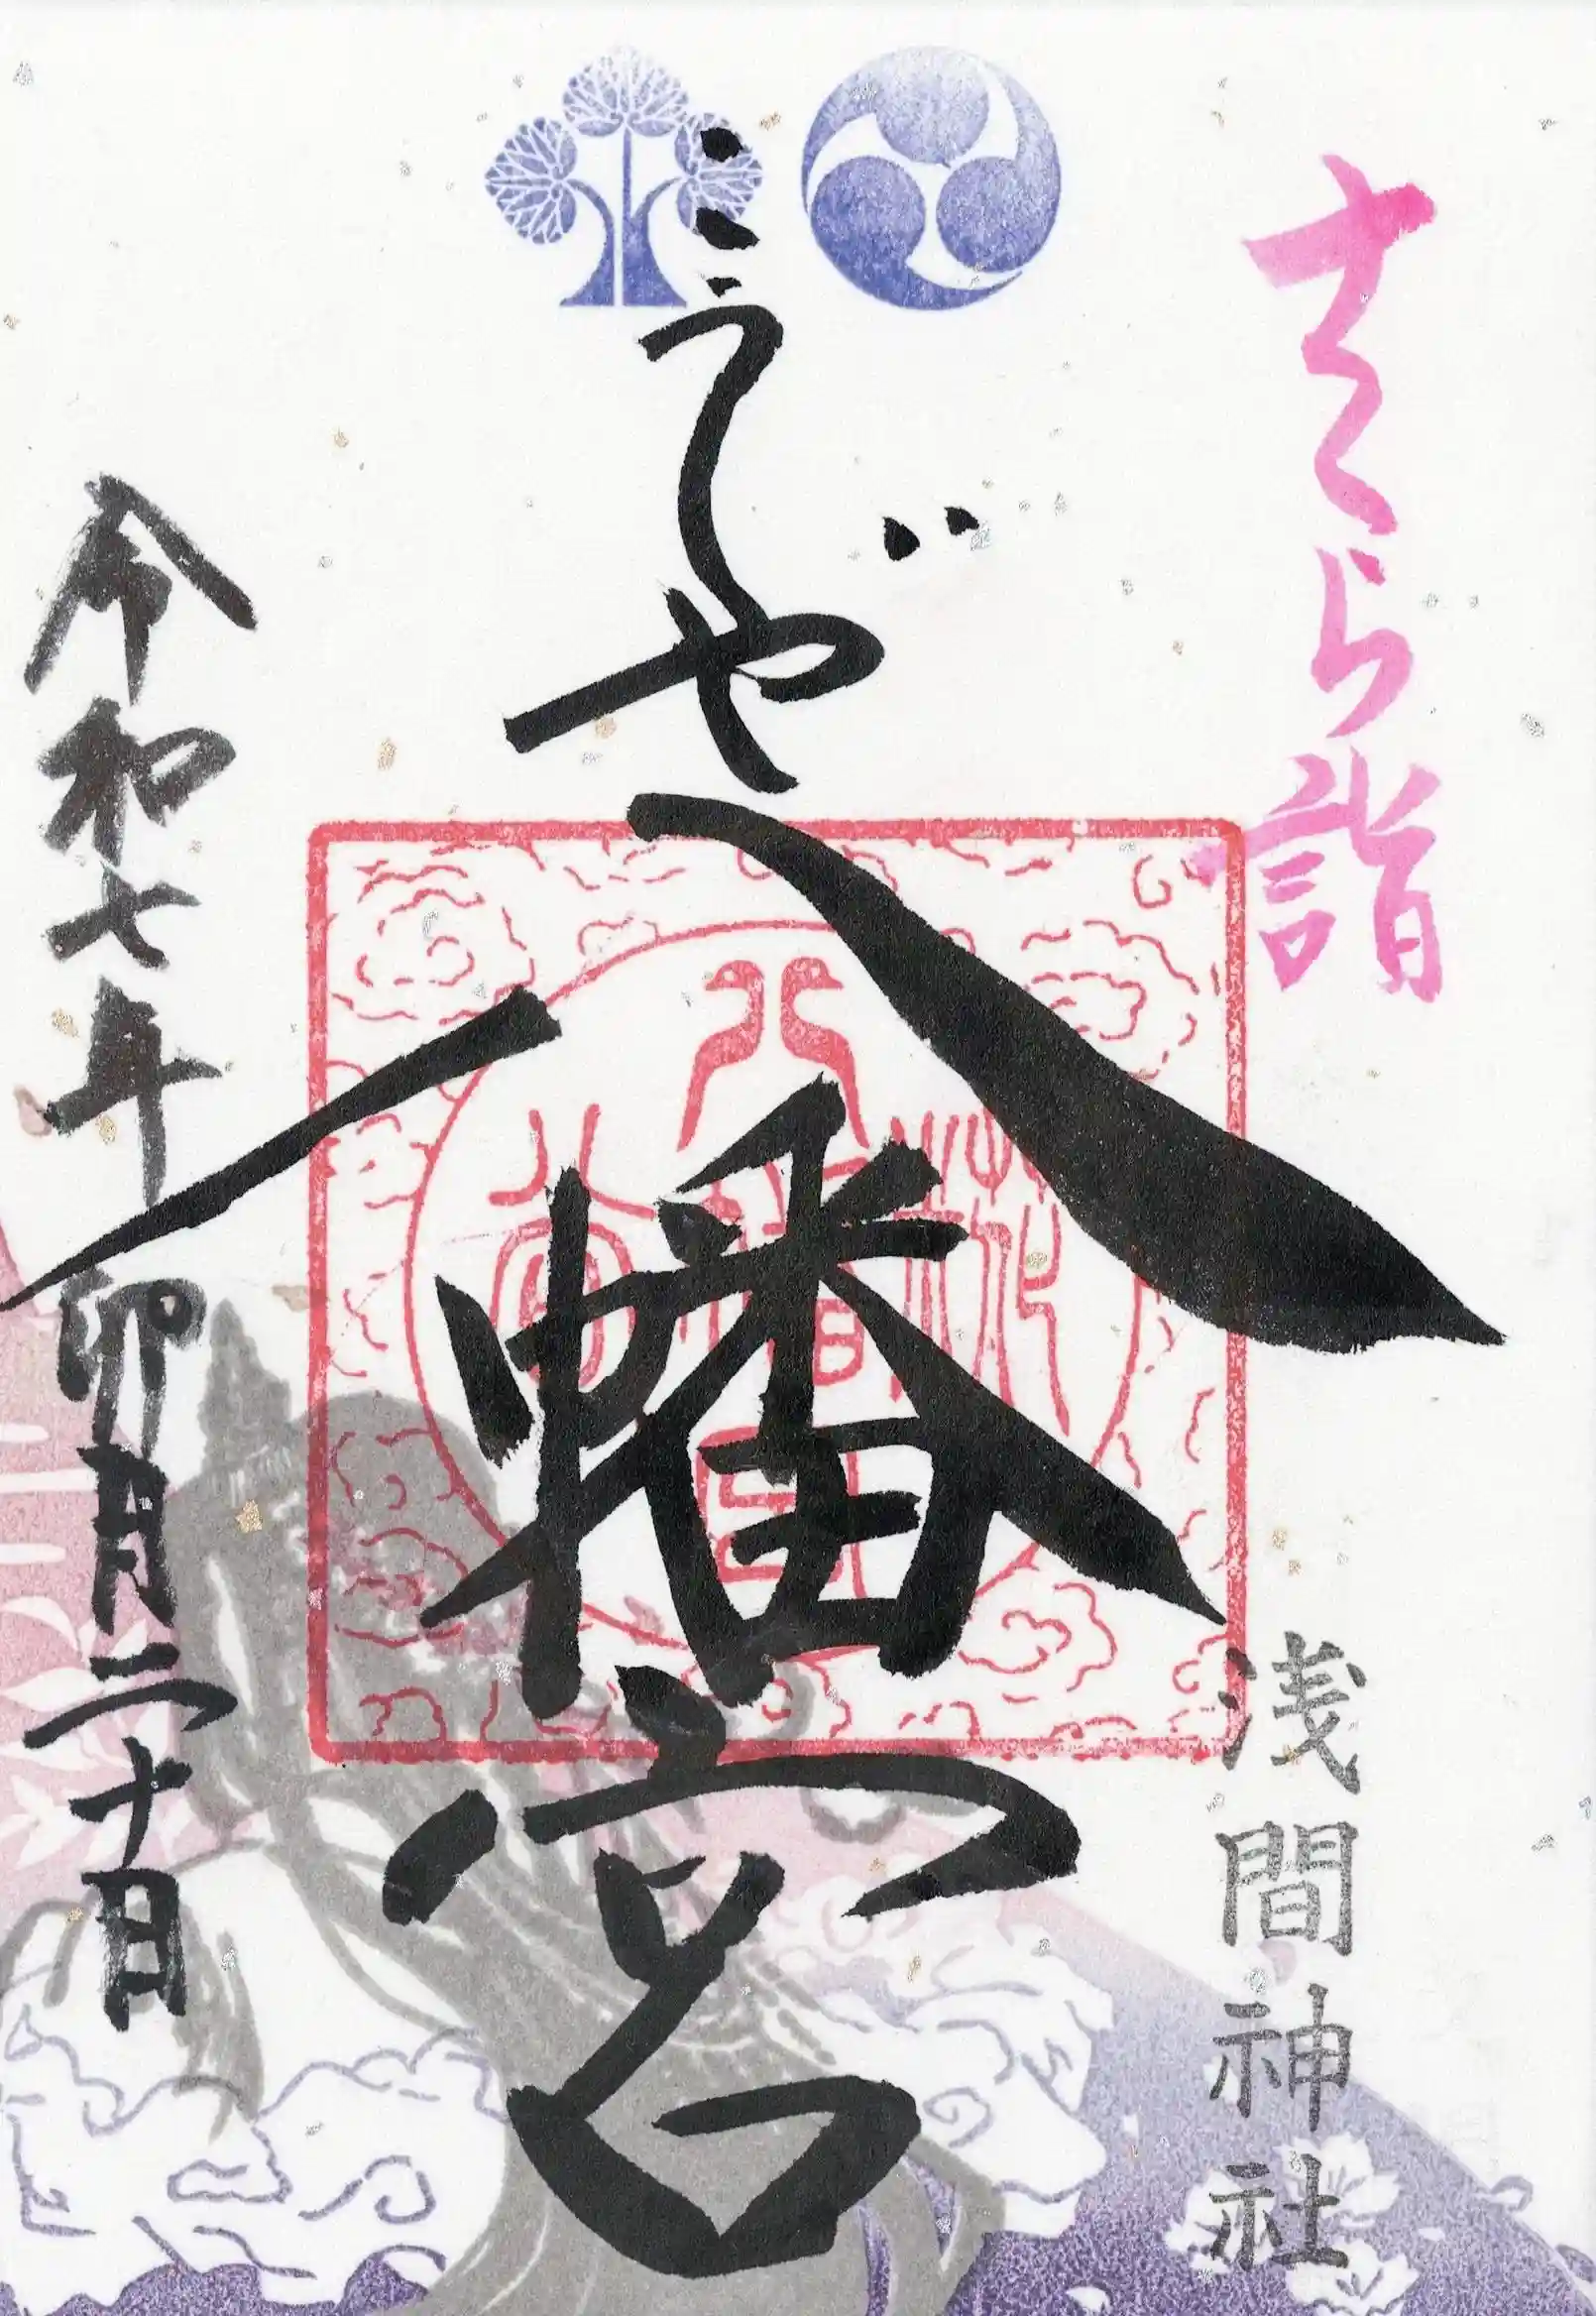 さくら詣
浅間神社
こうじや八幡宮
令和七年卯月二十日